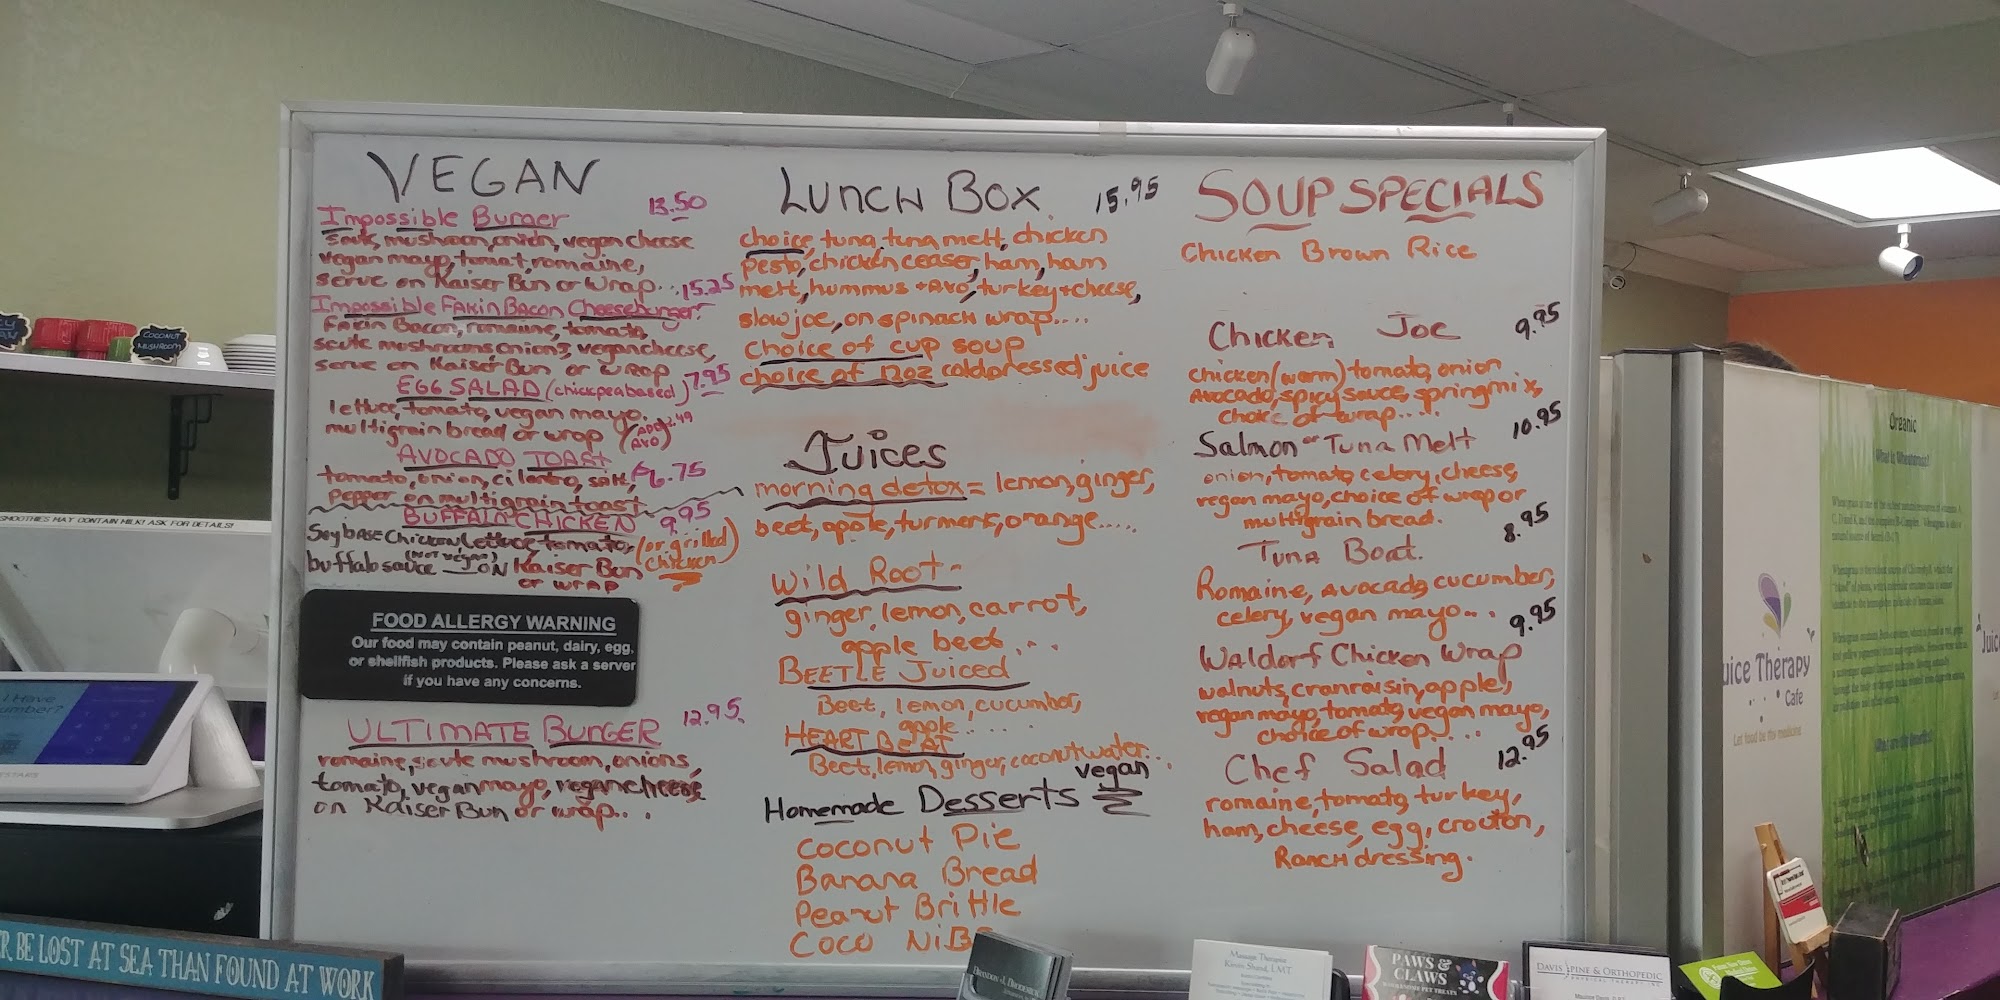 VEGAN
Impossible Burger 13.50
saute, mushroom, onion, vegan cheese
vegan mayo, tomat, romaine,
serve on Kaiser Bun or Wrap... 15.25
Impossible Fakin Bacon Cheeseburger
Fakin Bacon, romaine, tomato,
saute mushrooms, onions, vegan cheese,
serve on Kaiser Bun or Wrap
EGG SALAD (chickpea based) 7.95
lettuce, tomato, vegan mayo.
multigrain bread or wrap (ADD 2.49
AVO)
AVOCADO TOAST
tomato, onion, cilantro, salt, 6.75
pepper on multigrain toast
BUFFALO CHICKEN 9.95
Soy base chicken lettuce, tomato, (or grilled
chicken)
buffalo sauce (not vegan) ON Kaiser Bun
or wrap
FOOD ALLERGY WARNING
Our food may contain peanut, dairy, egg,
or shellfish products. Please ask a server
if you have any concerns.
ULTIMATE BURGER 12.95
romaine, saute mushroom, onions,
tomato, vegan mayo, vegan cheese
on Kaiser Bun or wrap...
LUNCH BOX 15.95
choice, tuna, tuna melt, chicken
pesto, chicken ceaser, ham, ham
melt, hummus + Avo, turkey + cheese,
slow joe, on spinach wrap....
choice of cup soup
choice of 12oz coldpressed juice
Juices
morning detox = lemon, ginger,
beet, apple, turmeric, orange.....
Wild Root -
ginger, lemon, carrot,
apple beet ...
BEETLE Juiced
Beet, lemon, cucumber,
apple.....
HEART BEAT
Beet, lemon, ginger, coconut water...
Homemade Desserts vegan
Coconut Pie
Banana Bread
Peanut Brittle
Coco NiBs
SOUP SPECIALS
Chicken Brown Rice
Chicken Joe 9.95
chicken (warm) tomato, onion
Avocado, spicy sauce, springmix,
choice of wrap.....
Salmon or Tuna Melt 10.95
onion, tomato, celery, cheese,
vegan mayo, choice of wrap or
multigrain bread.
Tuna Boat. 8.95
Romaine, Avocado, cucumber,
celery, vegan mayo...
Waldorf Chicken Wrap 9.95
walnuts, cranraisin, apple,
vegan mayo, tomato, vegan mayo,
choice of wrap.....
Chef Salad 12.95
romaine, tomato, turkey,
ham, cheese, egg, crouton,
Ranch dressing.
COCONUT
MUSHROOM
SMOOTHIES MAY CONTAIN MILK! ASK FOR DETAILS!
BE LOST AT SEA THAN FOUND AT WORK
Organic
What is Wheatgrass?
uice Therapy
Cafe
Let food be thy medicine
BRANDON J. BRODERICK
Massage Therapies
PAWS &
CLAWS
DAVIS SPINE & ORTHOPEDIC